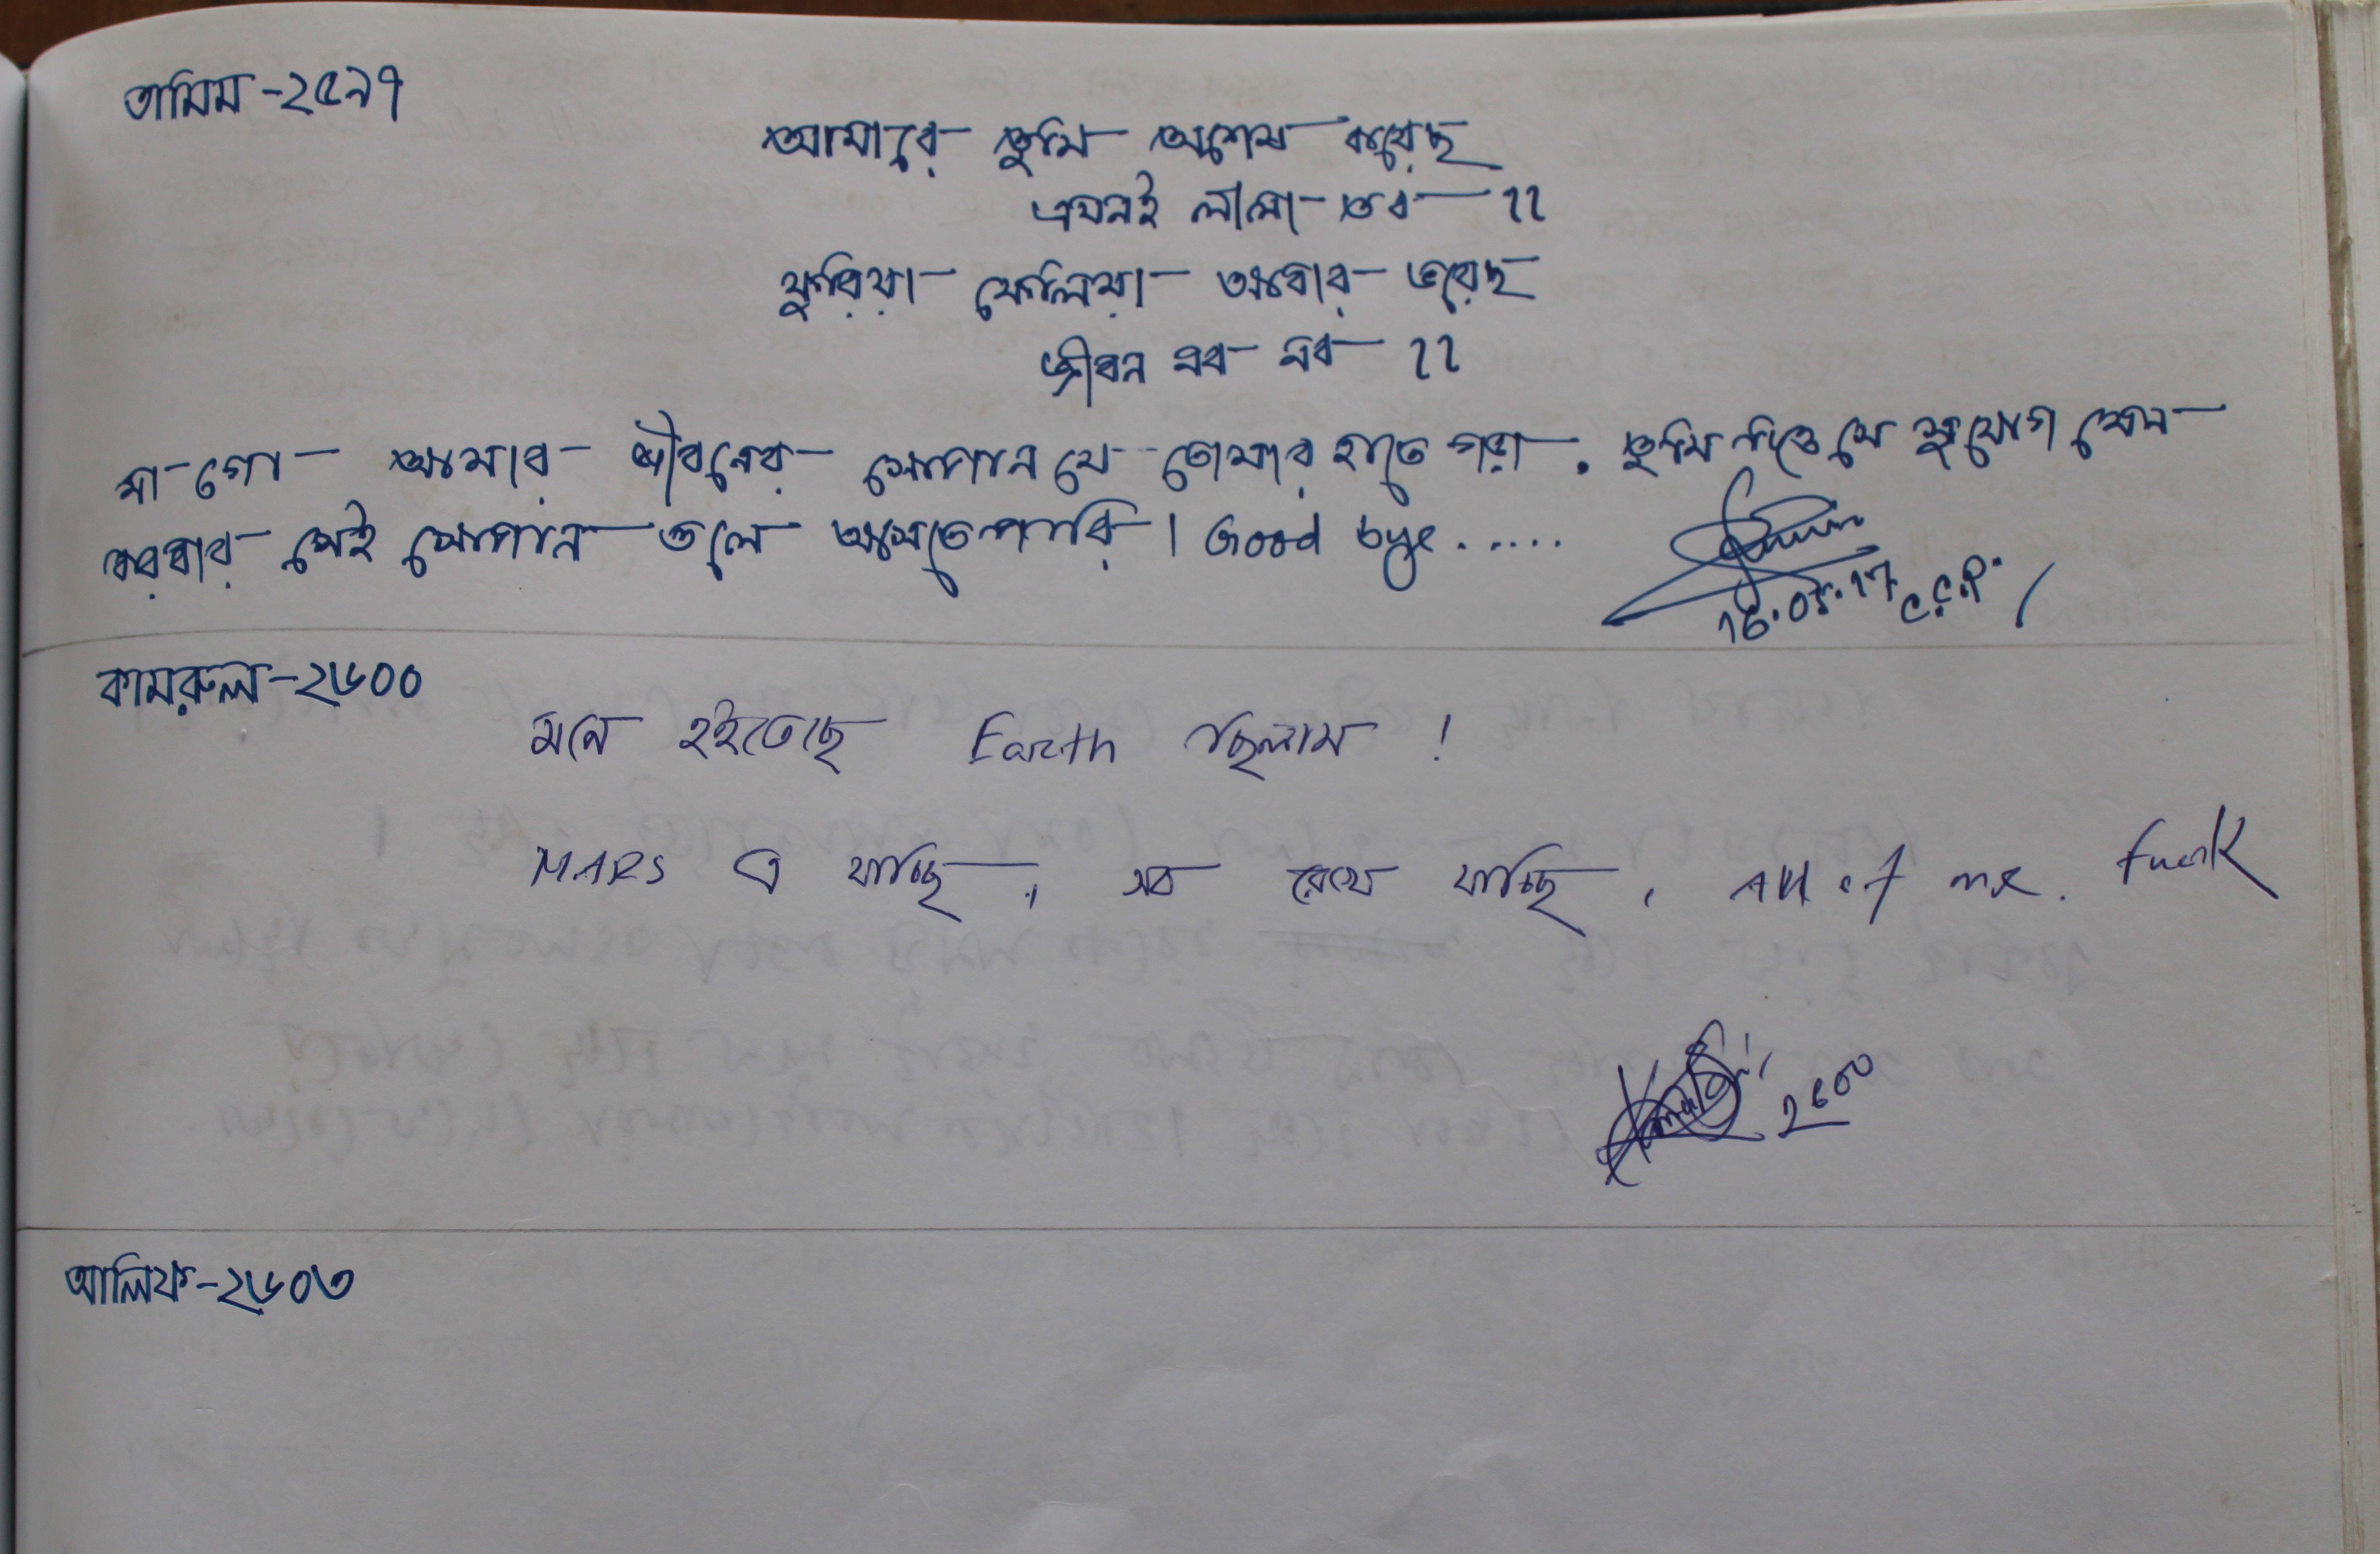 তামিম-২৫৯৭
আমারে তুমি অশেষ করেছ
এমনই লীলা তব ।।
ফুরিয়া ফেলিয়া আবার ভরেছ
জীবন নব নব ।।
মা গো আমার জীবনের সোপান যে তোমার হাতে গড়া. তুমি যে সুযোগ যেন
বারবার সেই সোপান তলে আসতে পারি। Good bye.....
16.05.17 C.C.P.
কামরুল-২৬০০
মনে হইতেছে Earth ছিলাম !
MARS এ যাচ্ছি, সব রেখে যাচ্ছি, All of me.
2600
আলিফ-২৬০৩